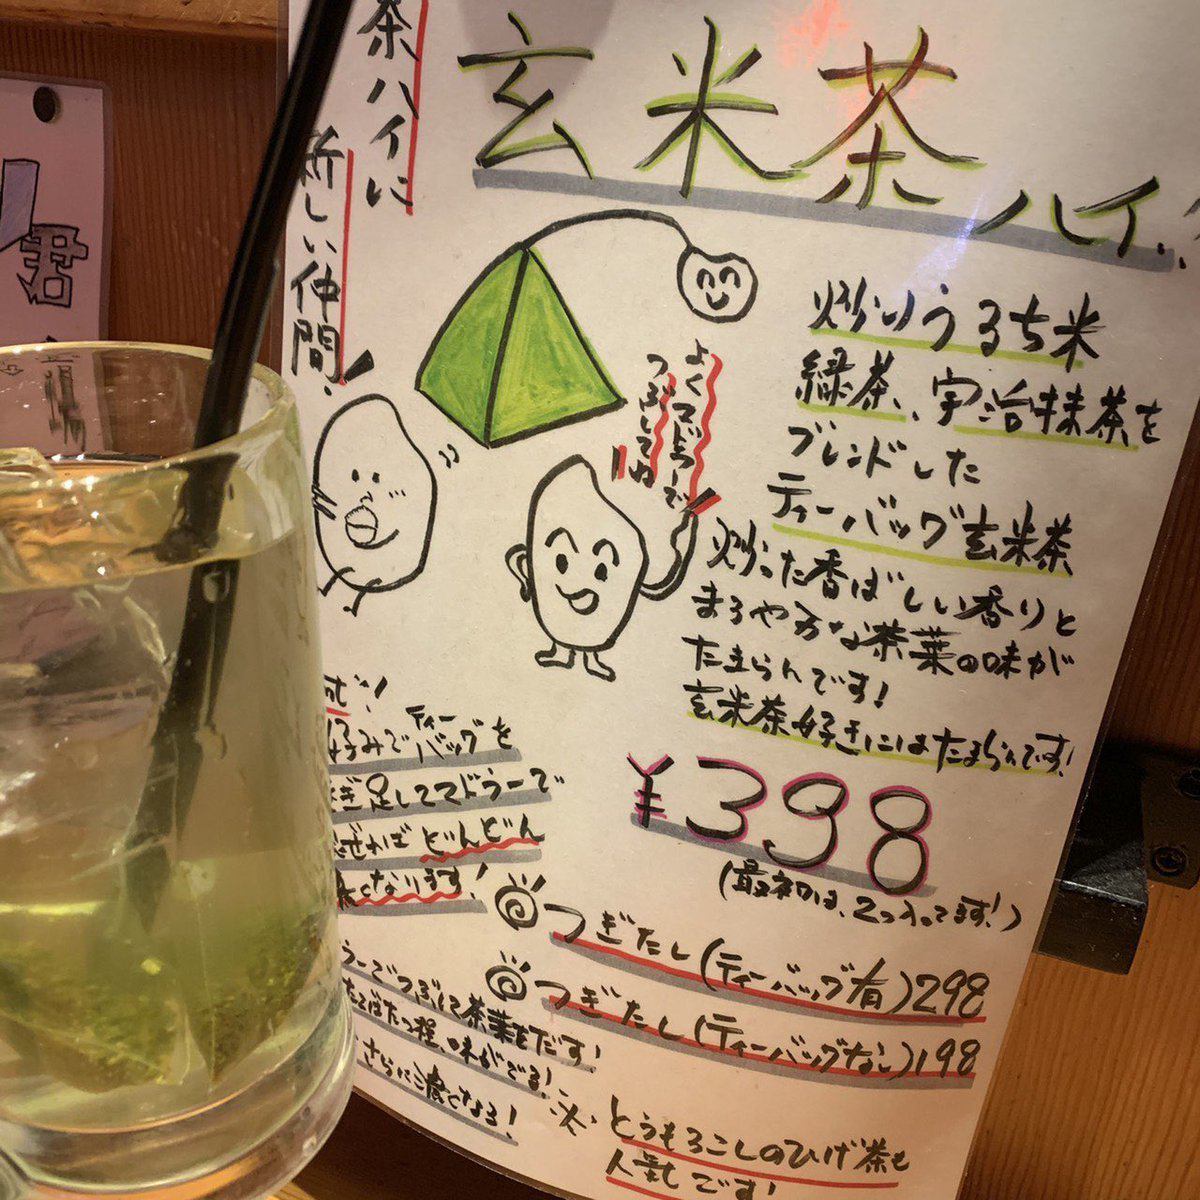 茶ハイに
新しい仲間!
玄米茶ハイ
炒りうるち米
緑茶、宇治抹茶を
ブレンドした
ティーバッグ玄米茶
炒った香ばしい香りと
まろやかな茶葉の味が
たまらんです!
玄米茶好きにはたまらんです!
よくマドラーで
つぶしてね
¥398
(最初は、2つ入ってます!)
つぎたし(ティーバッグ有)298
つぎたし(ティーバッグなし)198
好みでティーバッグを
つぎ足してマドラーで
混ぜればどんどん
濃くなります!
ラーでつぶして茶葉をだす!
たてばたつ程、味がでる!
さらに濃くなる!
※とうもろこしのひげ茶も
人気です!
君